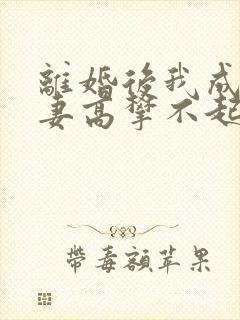 離婚後我成
妻高攀不起
帶毒額苹果